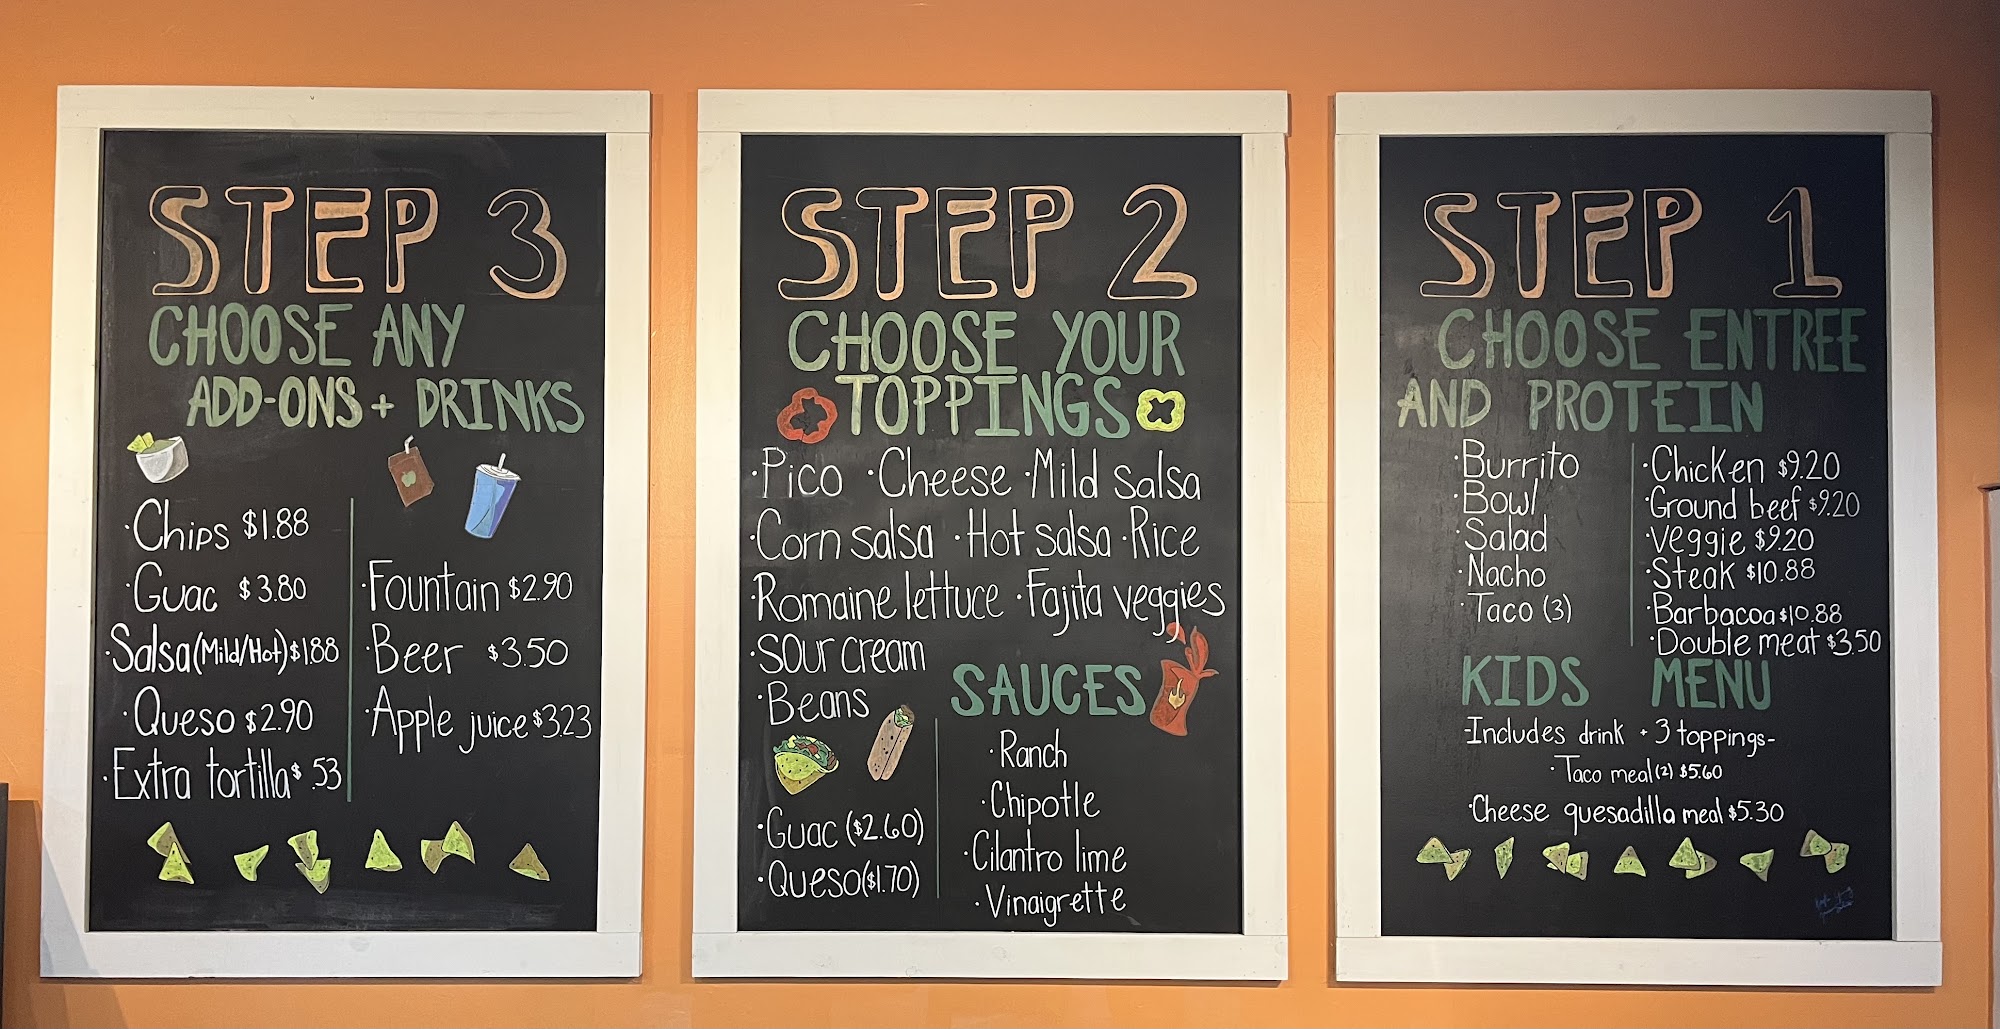 STEP 3
CHOOSE ANY
ADD-ONS + DRINKS
·Chips $1.88
·Guac $3.80
·Salsa (Mild/Hot) $1.88
·Queso $2.90
·Extra tortilla $.53
·Fountain $2.90
·Beer $3.50
·Apple juice $3.23
STEP 2
CHOOSE YOUR
TOPPINGS
·Pico ·Cheese ·Mild salsa
·Corn salsa ·Hot salsa ·Rice
·Romaine lettuce ·Fajita veggies
·sour cream
·Beans
·Guac ($2.60)
·Queso ($1.70)
SAUCES
·Ranch
·Chipotle
·Cilantro lime
·Vinaigrette
STEP 1
CHOOSE ENTREE
AND PROTEIN
·Burrito
·Bowl
·Salad
·Nacho
·Taco (3)
·Chicken $9.20
·Ground beef $9.20
·Veggie $9.20
·Steak $10.88
·Barbacoa $10.88
·Double meat $3.50
KIDS MENU
-Includes drink + 3 toppings-
·Taco meal (2) $5.60
·Cheese quesadilla meal $5.30